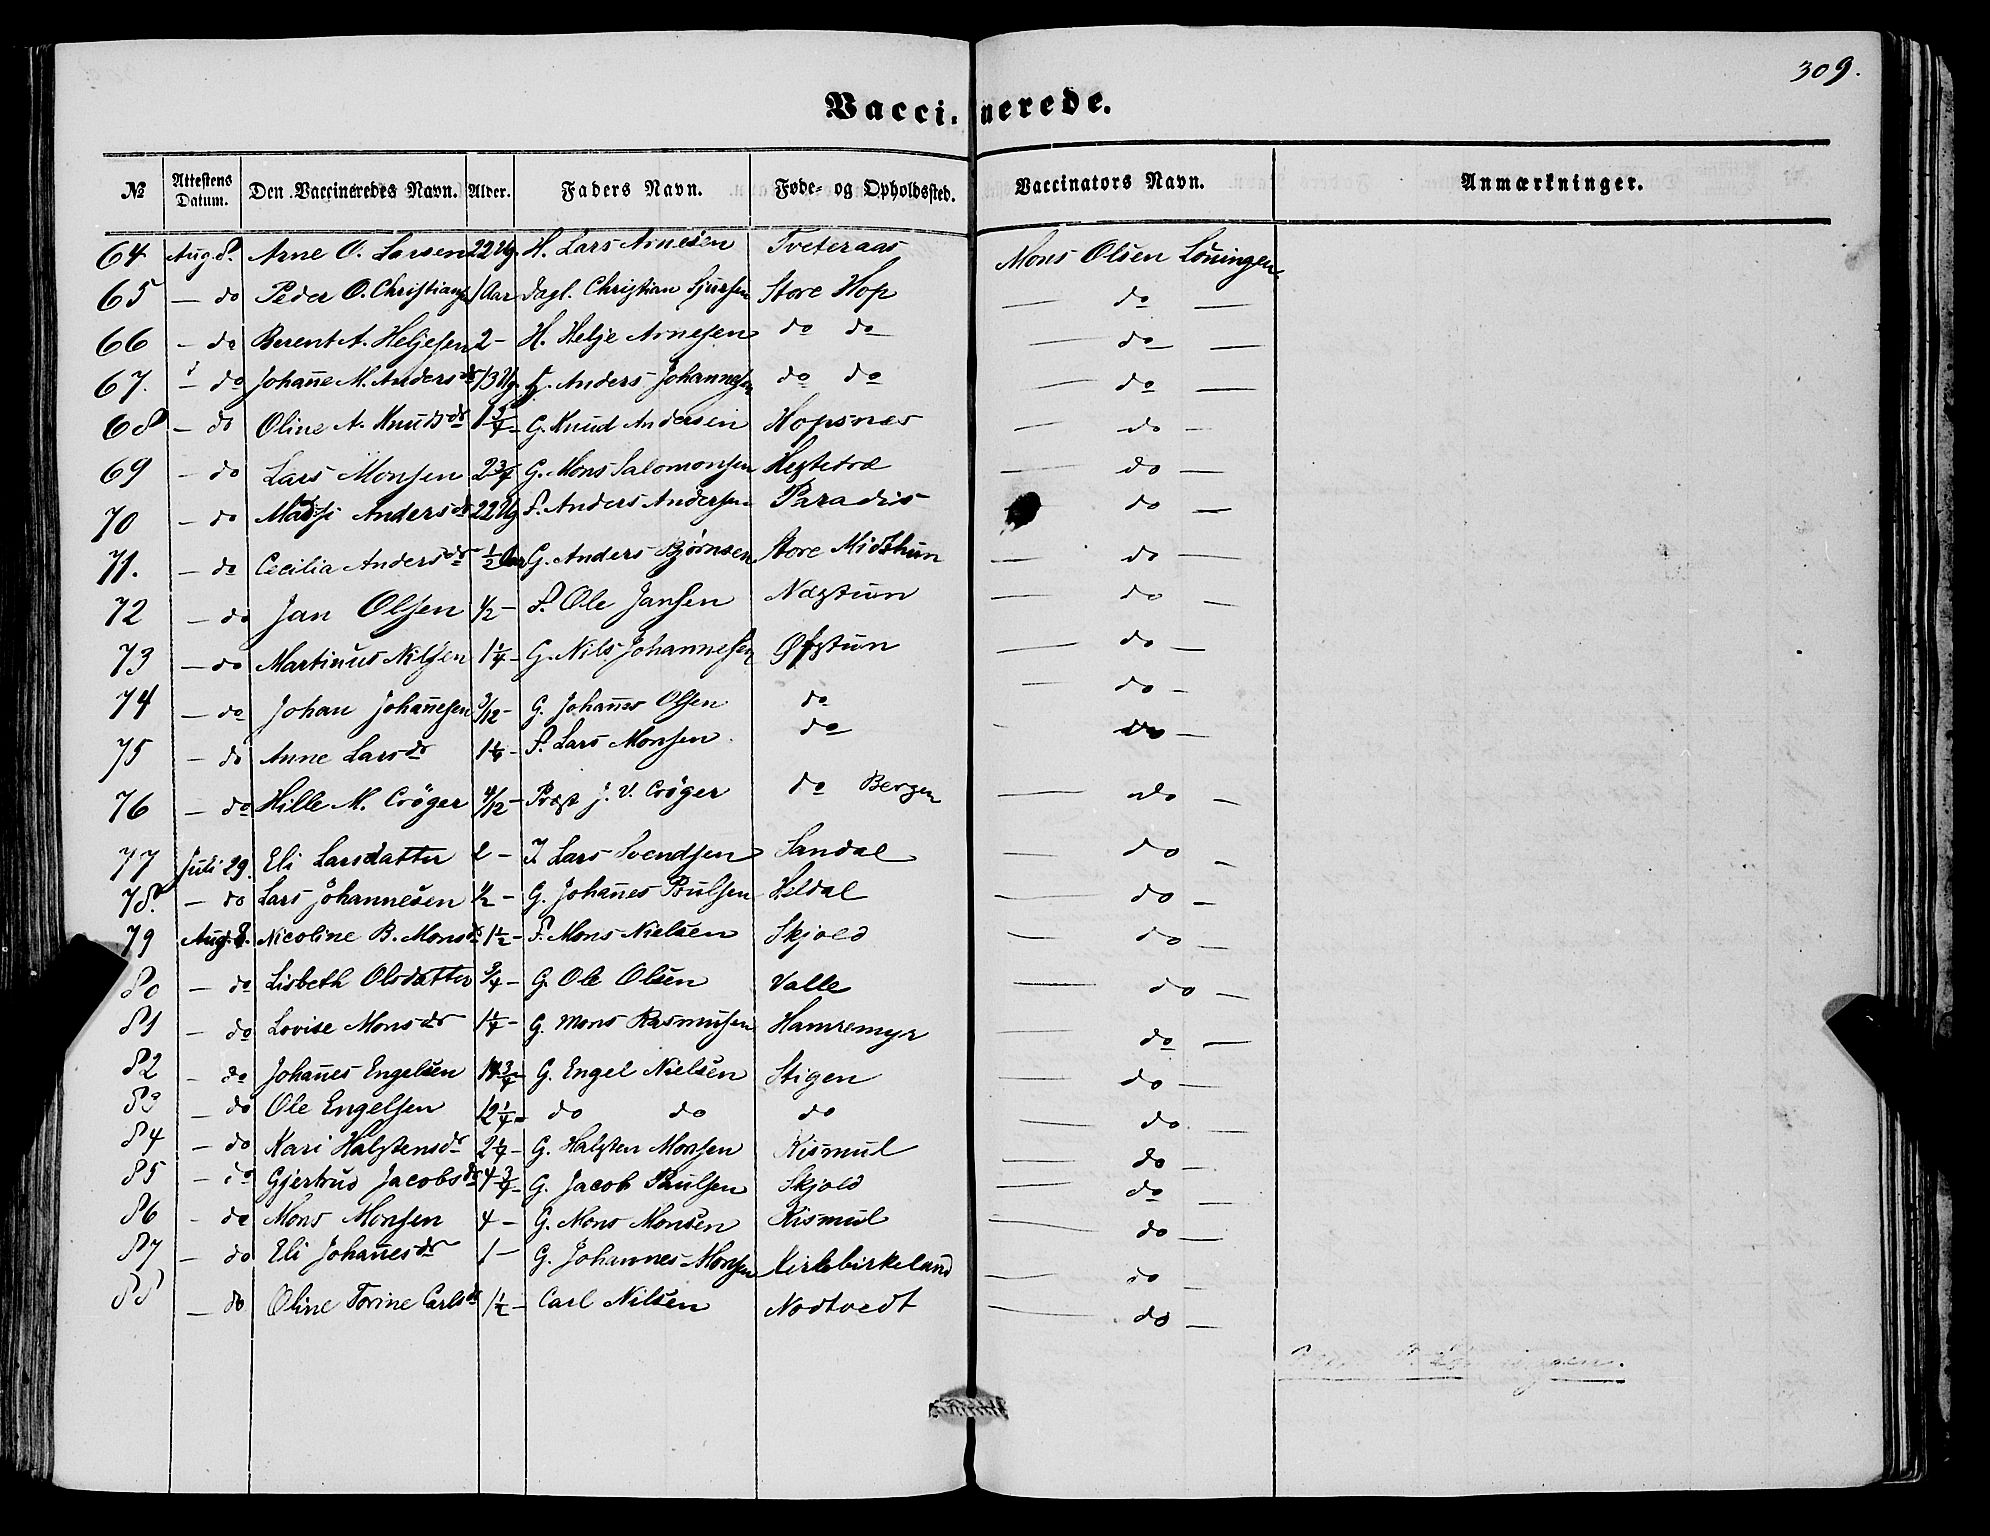 309.
Vaccinerede.
№ Attestens Datum. Den Vaccineredes Navn. Alder. Faders Navn. Føde- og Opholdssted. Vaccinators Navn. Anmærkninger.
64 Aug 8. Arne O. Larsen 22 Ug. H. Lars Arnesen Tveteraas Mons Olsen Löningen
65 — do Peder O. Christians 1 Aar Dagl. Christian Sjursen Store Hop — do —
66 — do Berent A. Heljesen 2 - H. Helje Arnesen do do — do —
67. — do Johanne M. Andersdr 13 Ug. Anders Johannesen do do — do —
68 — do Oline A. Knudsdr G. Knud Andersen Hopsnes — do —
69 — do Lars Monsen 2 3/4 G. Mons Salomonsen — do —
70 — do Andersdr 22 Ug S. Anders Andersen Paradis — do —
71. — do Cecilia Andersdr 1/2 Aar G. Anders Bjørnsen Store Midthun — do —
72 — do Jan Olsen 1/2 - S. Ole Jansen Næstun — do —
73 — do Martinus Nilsen 1 1/4 - G. Nils Johannesen Øfstun — do —
74 — do Johan Johañesen 3/12 - G. Johañes Olsen do — do —
75 — do Anne Larsdr S. Lars Monsen do - do —
76 — do Hille M. Cröger /12 - Præst J. V. Cröger do Bergen — do —
77 Juli 29. Eli Larsdatter 2 - I Lars Svendsen Sandal — do —
78. — do Lars Johannesen 1/2 - G. Johañes Pulsen Heldal — do —
79 Aug. 8. Nicoline B. Monsdr 1 1/2 - S. Mons Nielsen Skjold — do —
80 — do Lisbeth Olsdatter 3/4 - G. Ole Olsen Valle — do —
81 — do Lovise Monsdr 1 1/4 - G. Mons Rasmusen Hamremyr — do —
82 — do Johañes Engelsen G. Engel Nielsen Stigen — do —
83 — do Ole Engelsen 12 1/4 - do do do — do —
84 — do Kari Halstensdr 2 1/4 - G. Halsten Monsen Kismul — do —
85 — do Gjertrud Jacobsdr 4 3/4 - G. Jacob Paulsen Skjold — do —
86 - do Mons Monsen 4 - G. Mons Monsen Kismul — do —
87 — do Eli Johañesdr 1 - G. Johannes Monsen Kirkebirkeland — do —
88 — do Oline Torine Carlsdr 1 1/2 - Carl Nilsen Nodtvedt — do —